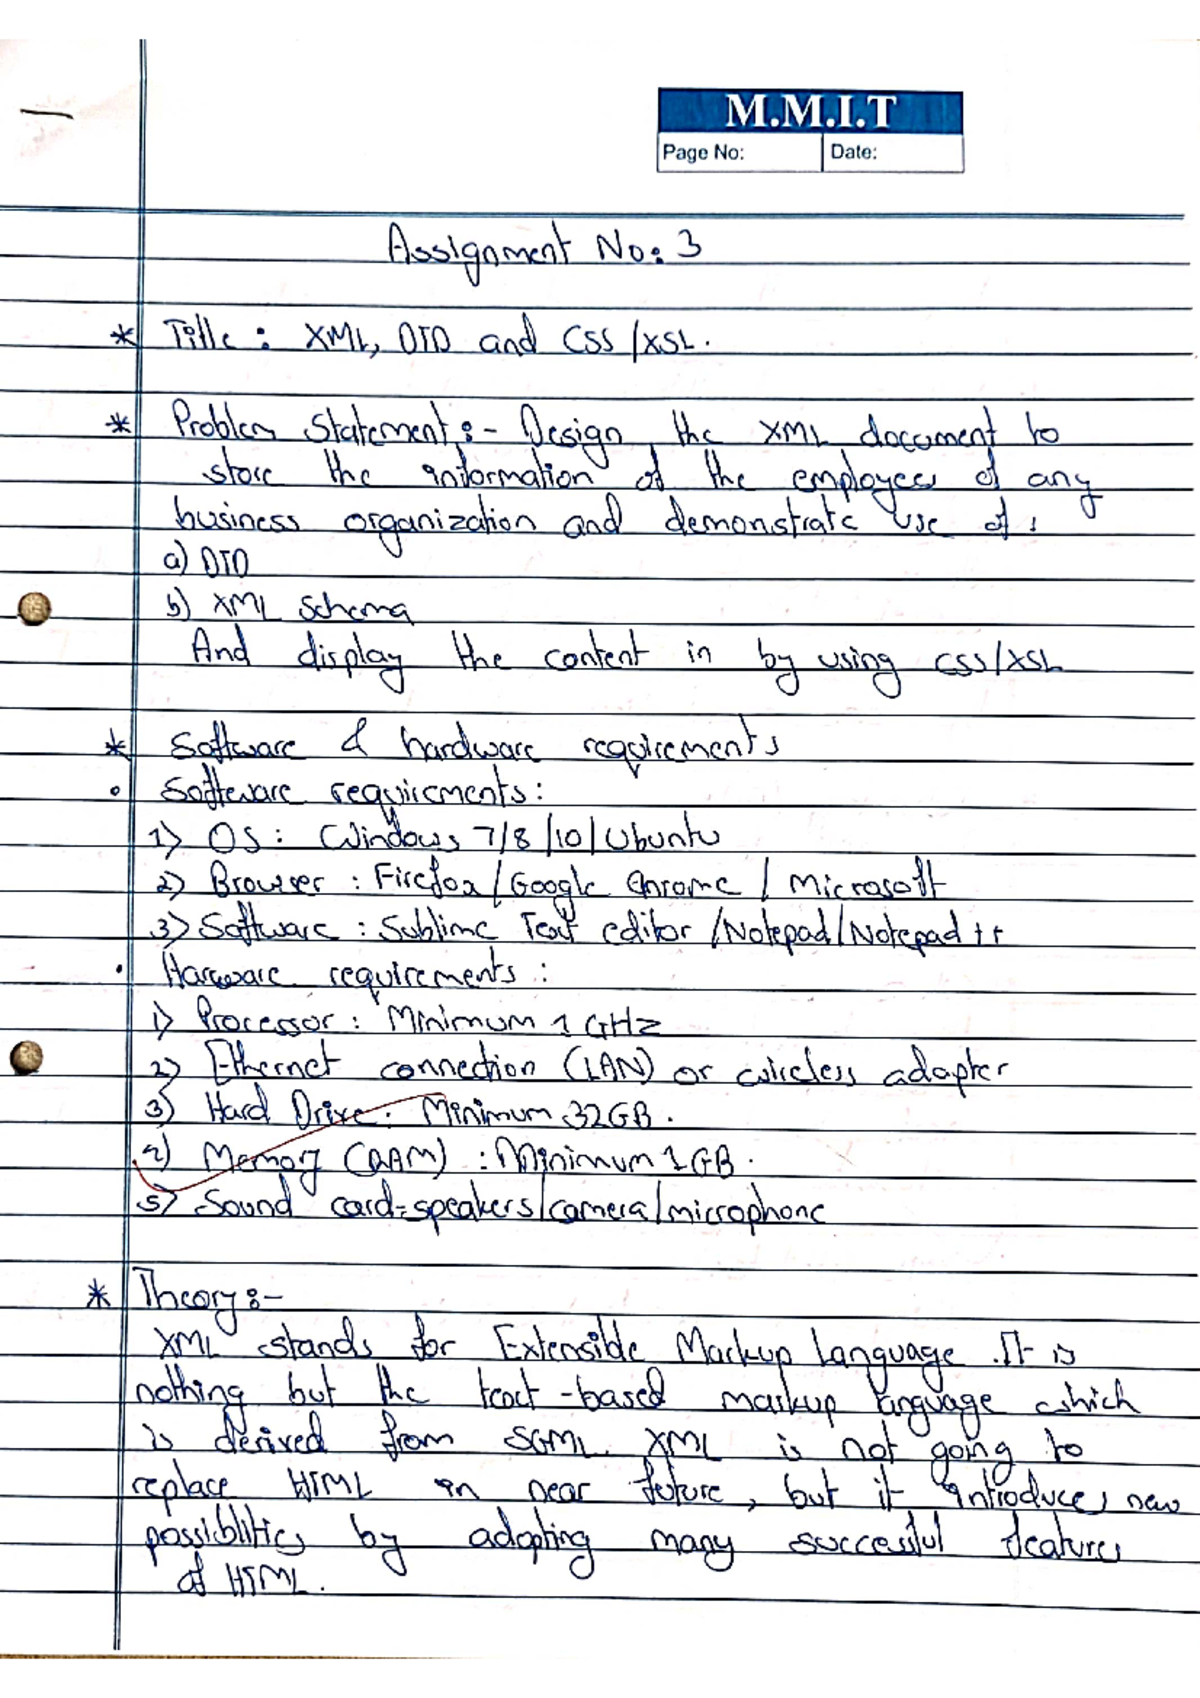 M.M.I.T
Page No: Date:
Assignment No: 3
* Title : XML, DTD and CSS /XSL.
* Problem Statement :- Design the XML document to
store the information of the employees of any
business organization and demonstrate use of :
a) DTD
b) XML Schema
And display the content in by using CSS/XSL
* Software & hardware requirements
• Software requirements :
1) OS : Windows 7/8/10/Ubuntu
2) Browser : Firefox/Google Chrome / Microsoft
3) Software : Sublime Text editor /Notepad/Notepad++
• Hardware requirements :
1) Processor : Minimum 1 GHz
2) Ethernet connection (LAN) or wireless adapter
3) Hard Drive : Minimum 32GB.
4) Memory (RAM) : Minimum 1 GB.
5) Sound card-speakers/camera/microphone
* Theory :-
XML stands for Extensible Markup Language .It is
nothing but the text-based markup language which
is derived from SGML. XML is not going to
replace HTML in near future, but it introduces new
possiblitics by adopting many successful features
of HTML.